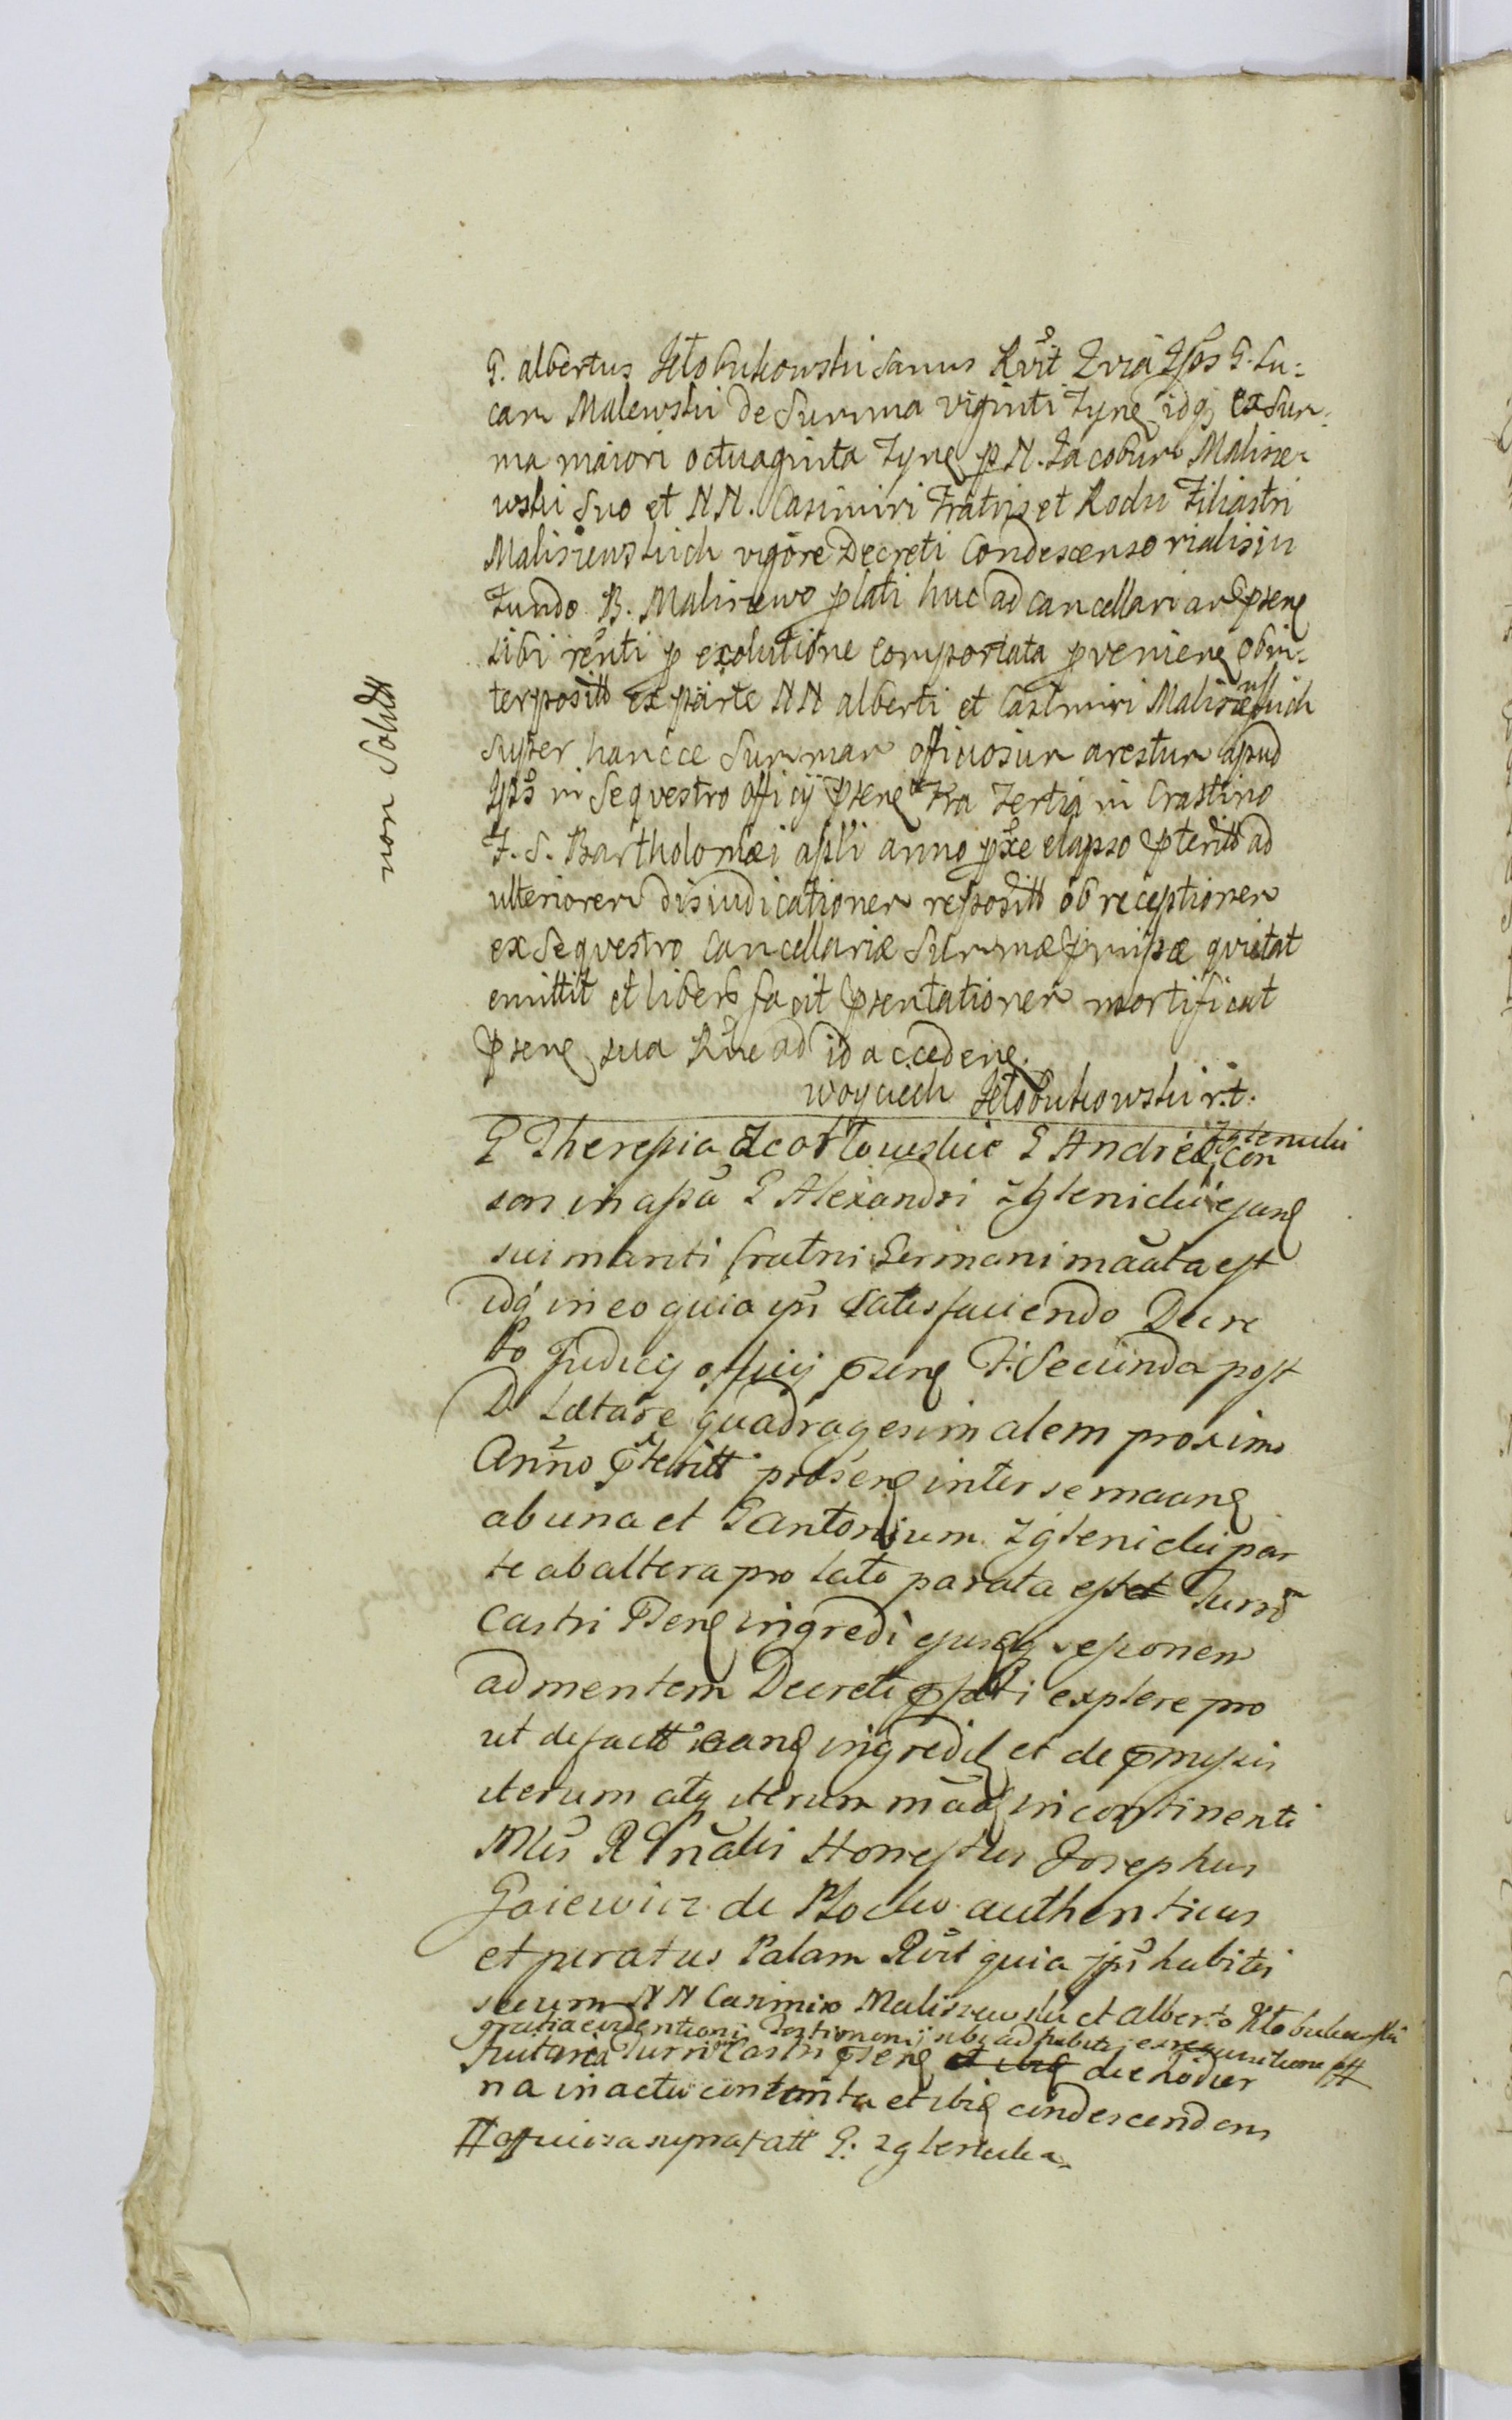 G. albertus Kłobukowski sanus Rvit Qvia Ipos G. Lu:
can Malewski de Summa viginti Tyne idq ex Sum:
ma maiori octuaginta Tyne p N. Jacobum Malisze:
wski suo et NN. Casimiri Fratris et Rochi Filiastri
Maliszewskich vigore Decreti Condescensorialis in
Fundo B. Maliszewo plati huc ad cancellariam psene
sibi renti p exolutione comportata pveniene obin:
terpositt ex parte NN alberti et Casimiri Maliszewskich
super hancce Summam officiosum arestum apud
Ipos in Seqvestro officij psene Fra Tertia in Crastino
F. S. Bartholomæi apli anno pxe elapso pteritt ad
ulteriorem disiudicationem repositt ob receptionem
ex Seqvestro Cancellariæ Summæ pmissæ qvietat
emittit et liberb facit psentationem mortificat
psene sua Rne ad id accedene.
Woyciech Kłobukowski r.t.
non Solutt
G Theresia G Andreæ Zglenicki Con
son in assa G Alexandri Zglenicki ejane
sui mariti fratris Germani maata est
idq in eo quia ipi satisfaciendo Decre
to Judicij officij psene F. Secunda post
D. Lætare quadragesimalem proximo
Anno pteritt psene inter se maane
ab una et G Antonium Zglenicki par
te ab altera pro lato parata est Turrim
Castri Psene ingredi ejusq seponem
ad mentem Decreti pfati explere pro
ut de factt eane ingredit et de pmissis
iterum atq iterum mae in continenti
Mlis R Gnalis Honestus Josephus
Gaiewicz de Płocko authenticus
et juratus Palam Rvit quia ipi habitis
secum NN Casimiro Maliszewski et Alberto Kłobukowski
gratia evidentioris Testimonij sibi adhibitis ex requisitione #
Turri Castri psene die hodier
na in actu contenta et ibiq condescendens
# officiosa suprafatt G. Zglenicka